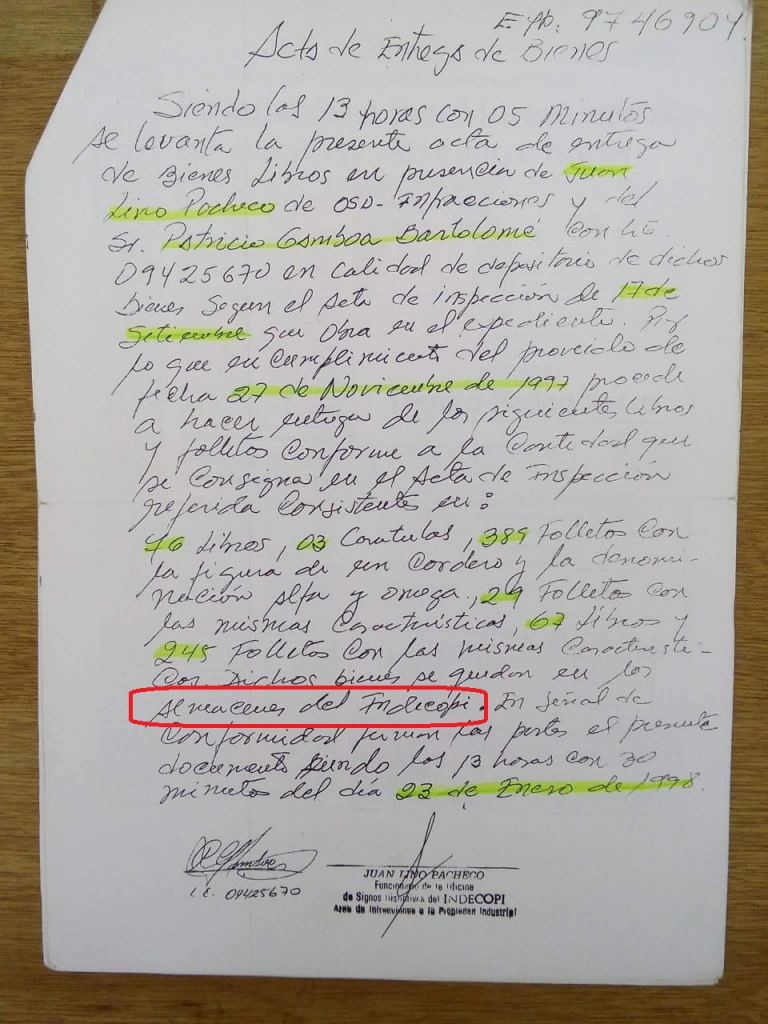 Exp. 9746904
Acta de Entrega de Bienes
Siendo las 13 horas con 05 minutos
se levanta la presente acta de entrega
de Bienes Libros en presencia de Juan
Lino Pacheco de OSD-Infracciones y del
Sr. Patricio Gamboa Bartolomé con
09425670 en calidad de depositario de dichos
bienes Segun el acta de inspección de 17 de
Setiembre que Obra en el expediente. Por
lo que en cumplimiento del proveido de
fecha 27 de Noviembre de 1997 procede
a hacer entrega de los siguientes libros
y folletos Conforme a la Cantidad que
se Consigna en el Acta de Inspección
referida Consistentes en:
Libros, 03 Caratulas, 389 Folletos Con
la figura de un Cordero y la denomi-
nación Alfa y omega, 29 Folletos Con
las mismas Características, 67 Libros y
245 Folletos Con las mismas Caracterist-
icas. Dichos bienes se quedan en los
Almacenes del Indecopi. En señal de
Conformidad firman las partes el presente
documento siendo las 13 horas con 30
minutos del día 23 de Enero de 1998.
L.E. 09425670
JUAN LINO PACHECO
Funcionario de la Oficina
de Signos Distintivos del INDECOPI
Area de Infracciones a la Propiedad Industrial